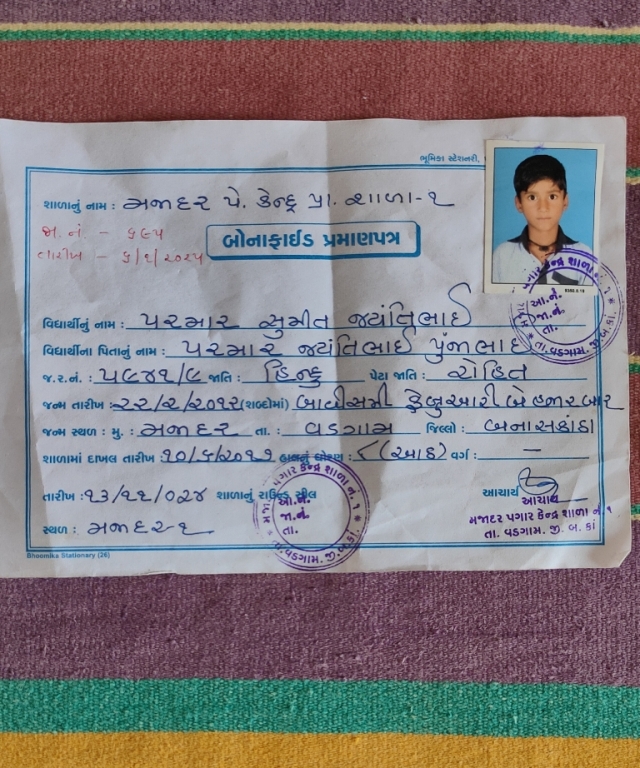 ભૂમિકા સ્ટેશનરી,
શાળાનું નામ : મજાદર પે. કેન્દ્ર પ્રા. શાળા-૧
જા. નં. - ૬૯૫
તારીખ - ૬/૧/૨૦૨૫
બોનાફાઈડ પ્રમાણપત્ર
વિદ્યાર્થીનું નામ : પરમાર સુમીત જયંતિભાઈ
વિદ્યાર્થીના પિતાનું નામ : પરમાર જયંતિભાઈ પુંજાભાઈ
જ.ર.નં. : ૫૯૪૧/૯ જાતિ : હિન્દુ પેટા જાતિ : રોહિત
જન્મ તારીખ : ૨૨/૨/૨૦૧૨ (શબ્દોમાં) બાવીસમી ફેબ્રુઆરી બે હજાર બાર
જન્મ સ્થળ : મુ. : મજાદર તા. : વડગામ જિલ્લો : બનાસકાંઠા
શાળામાં દાખલ તારીખ : ૧૦/૬/૨૦૧૭ ધોરણ : ૮ (આઠ) વર્ગ : —
તારીખ : ૧૩/૧૧/૦૨૪ શાળાનું રાઉન્ડ સીલ
આચાર્ય
આચાર્ય
મજાદર પગાર કેન્દ્ર શાળા નં. ૧
તા. વડગામ. જી. બ. કાં
સ્થળ : મજાદર-૧
મજાદર પગાર કેન્દ્ર શાળા નં. ૧
આ.નં.
જા.નં.
તા.
તા. વડગામ. જી. બ.કાં.
પગાર કેન્દ્ર શાળા નં. ૧
આ.નં.
જા.નં.
તા.
તા. વડગામ. જી. બ.કાં.
Bhoomika Stationary (26)